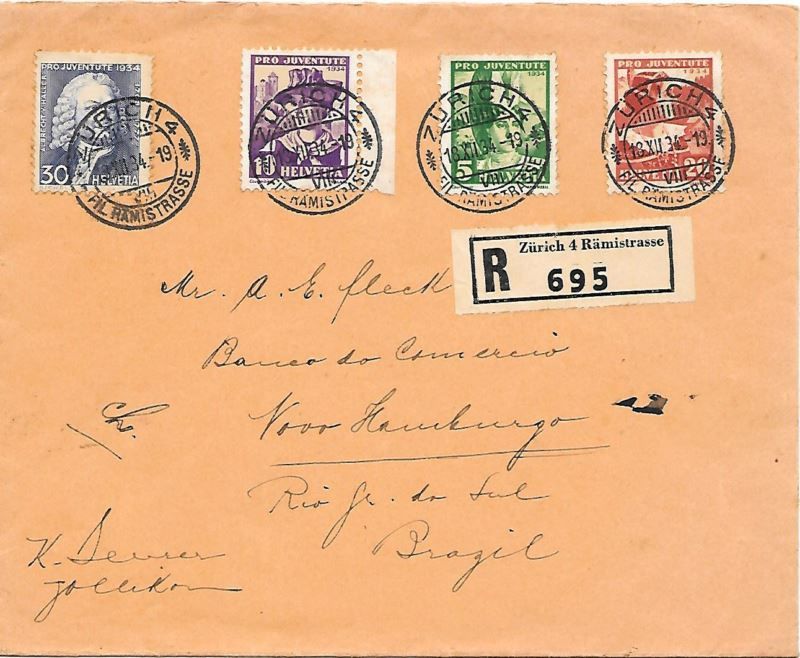 PRO JUVENTUTE 1934
ALBRECHT V. HALLER
30 HELVETIA
PRO JUVENTUTE
1934
HELVETIA
PRO JUVENTUTE
1934
5 HELVETIA
PRO JUVENTUTE
1934
20
ZÜRICH 4
XII.34.-19
VIII
FIL. RÄMISTRASSE
ZÜRICH 4
18.XII.34.-19
VIII
FIL. RÄMISTRASSE
ZÜRICH 4
18.XII.34.-19
VIII
FIL. RÄMISTRASSE
ZÜRICH 4
18.XII.34.-19
VIII
FIL. RÄMISTRASSE
R Zürich 4 Rämistrasse
695
Mr. A. E. Fleck
Banco do Comercio
Ch.
Novo Hamburgo
Rio Gr. do Sul
Brazil
K. Deurer
Zollikon